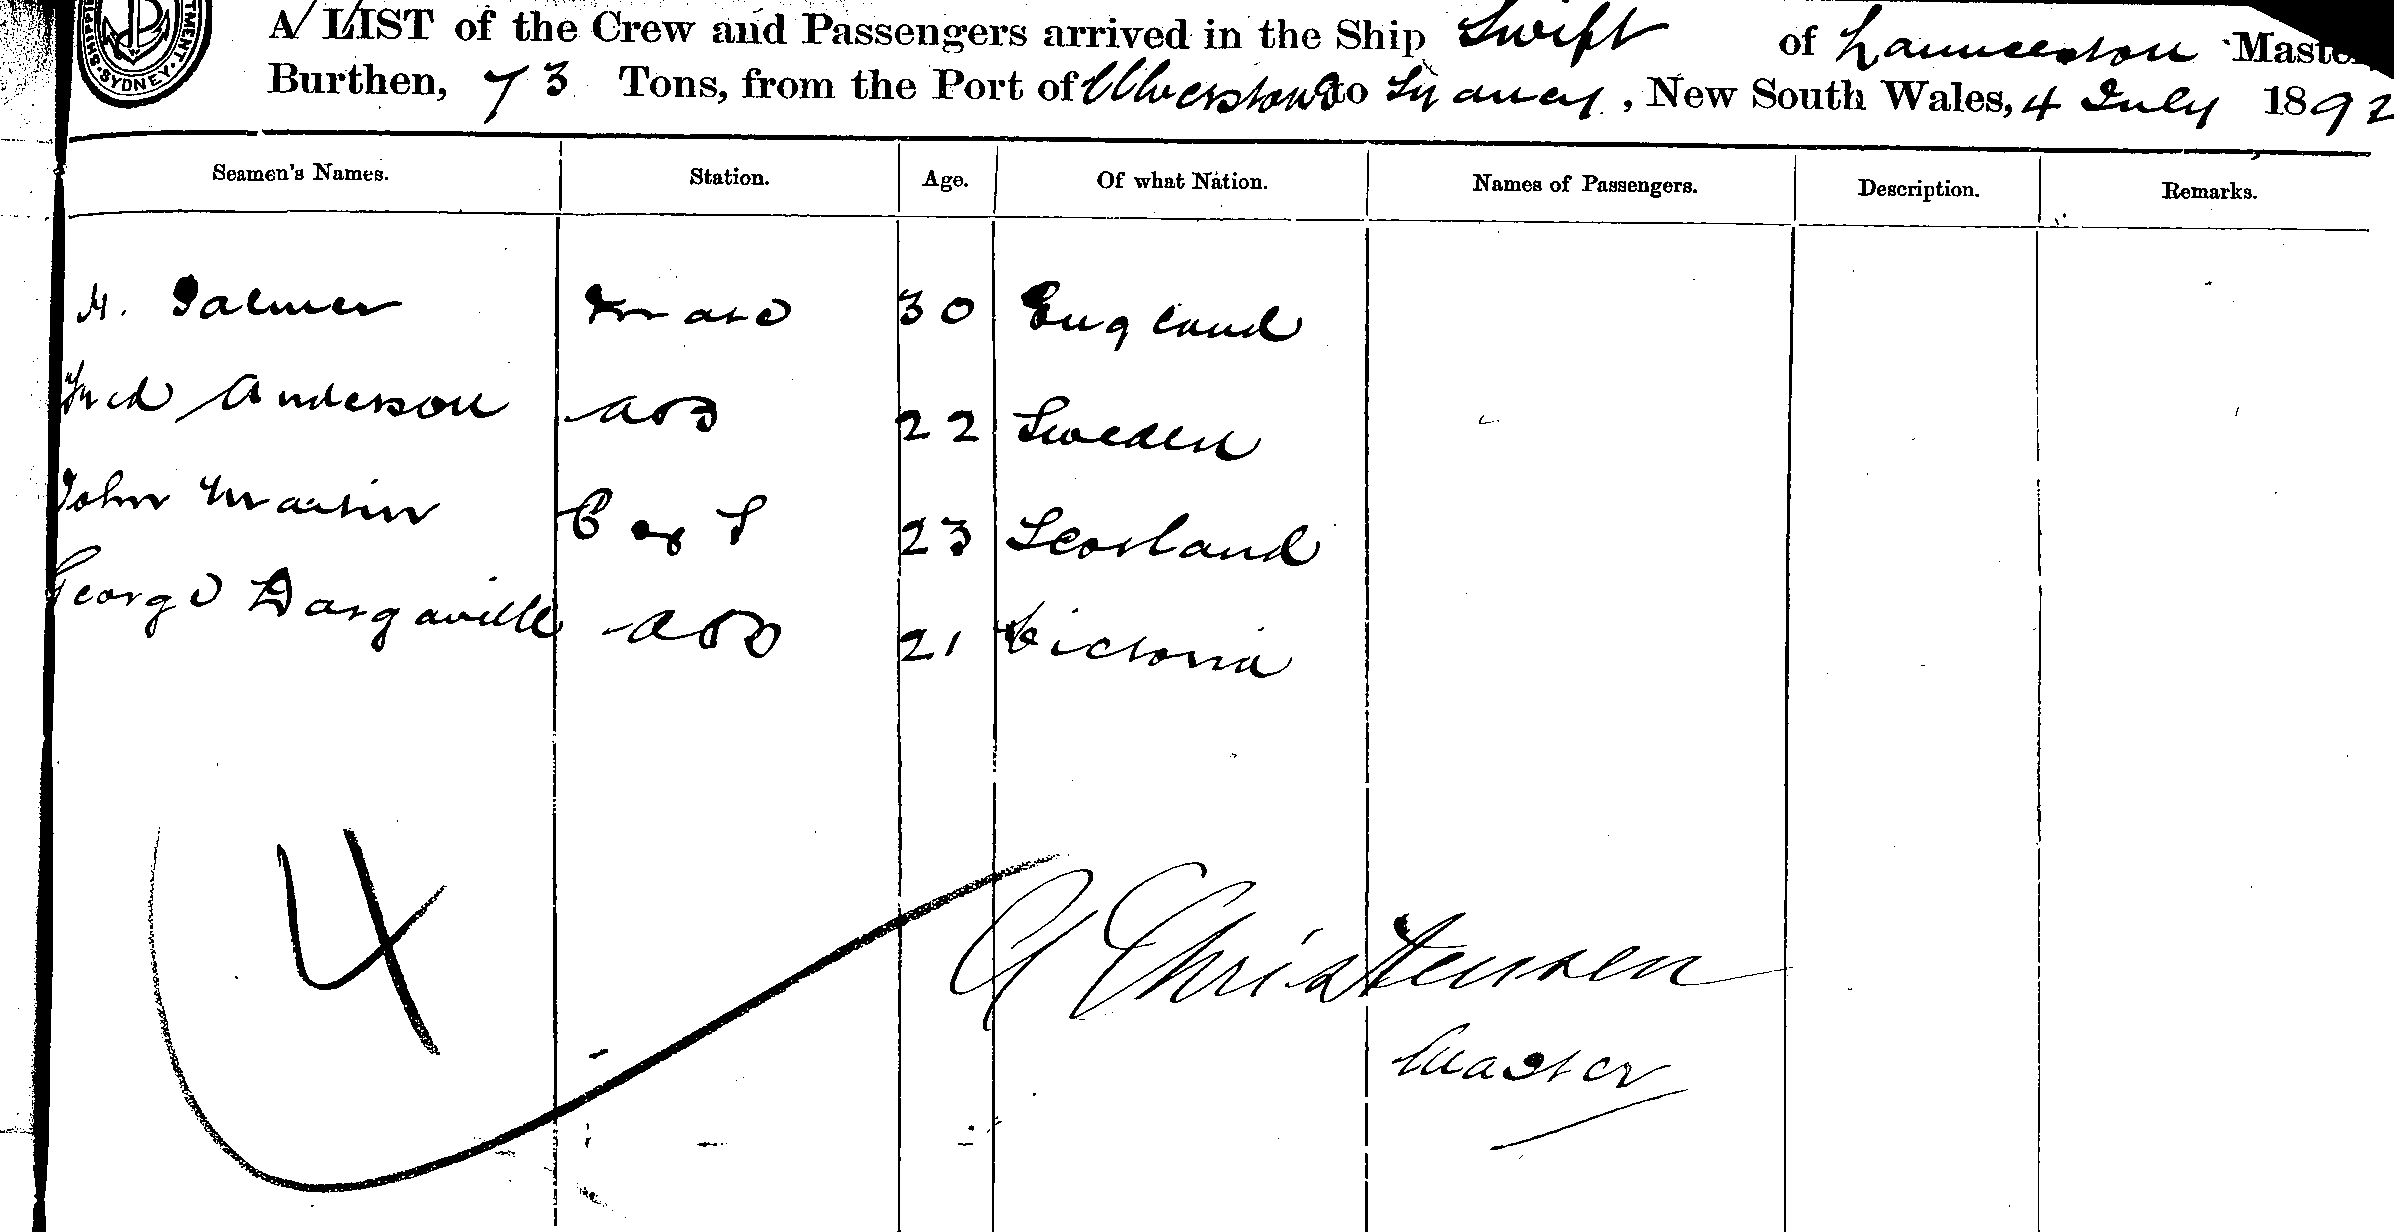 A LIST of the Crew and Passengers arrived in the Ship Swift of Launceston Master,
Burthen, 73 Tons, from the Port of Ulverstone to Sydney, New South Wales, 4 July 1892
SYDNEY
Seamen's Names. Station. Age. Of what Nation. Names of Passengers. Description. Remarks.
Palmer Mate 30 England
Fred Anderson AB 22 Sweden
John Martin C & S 23 Scotland
George Dargaville AB 21 Victoria
4
Christensen
Master